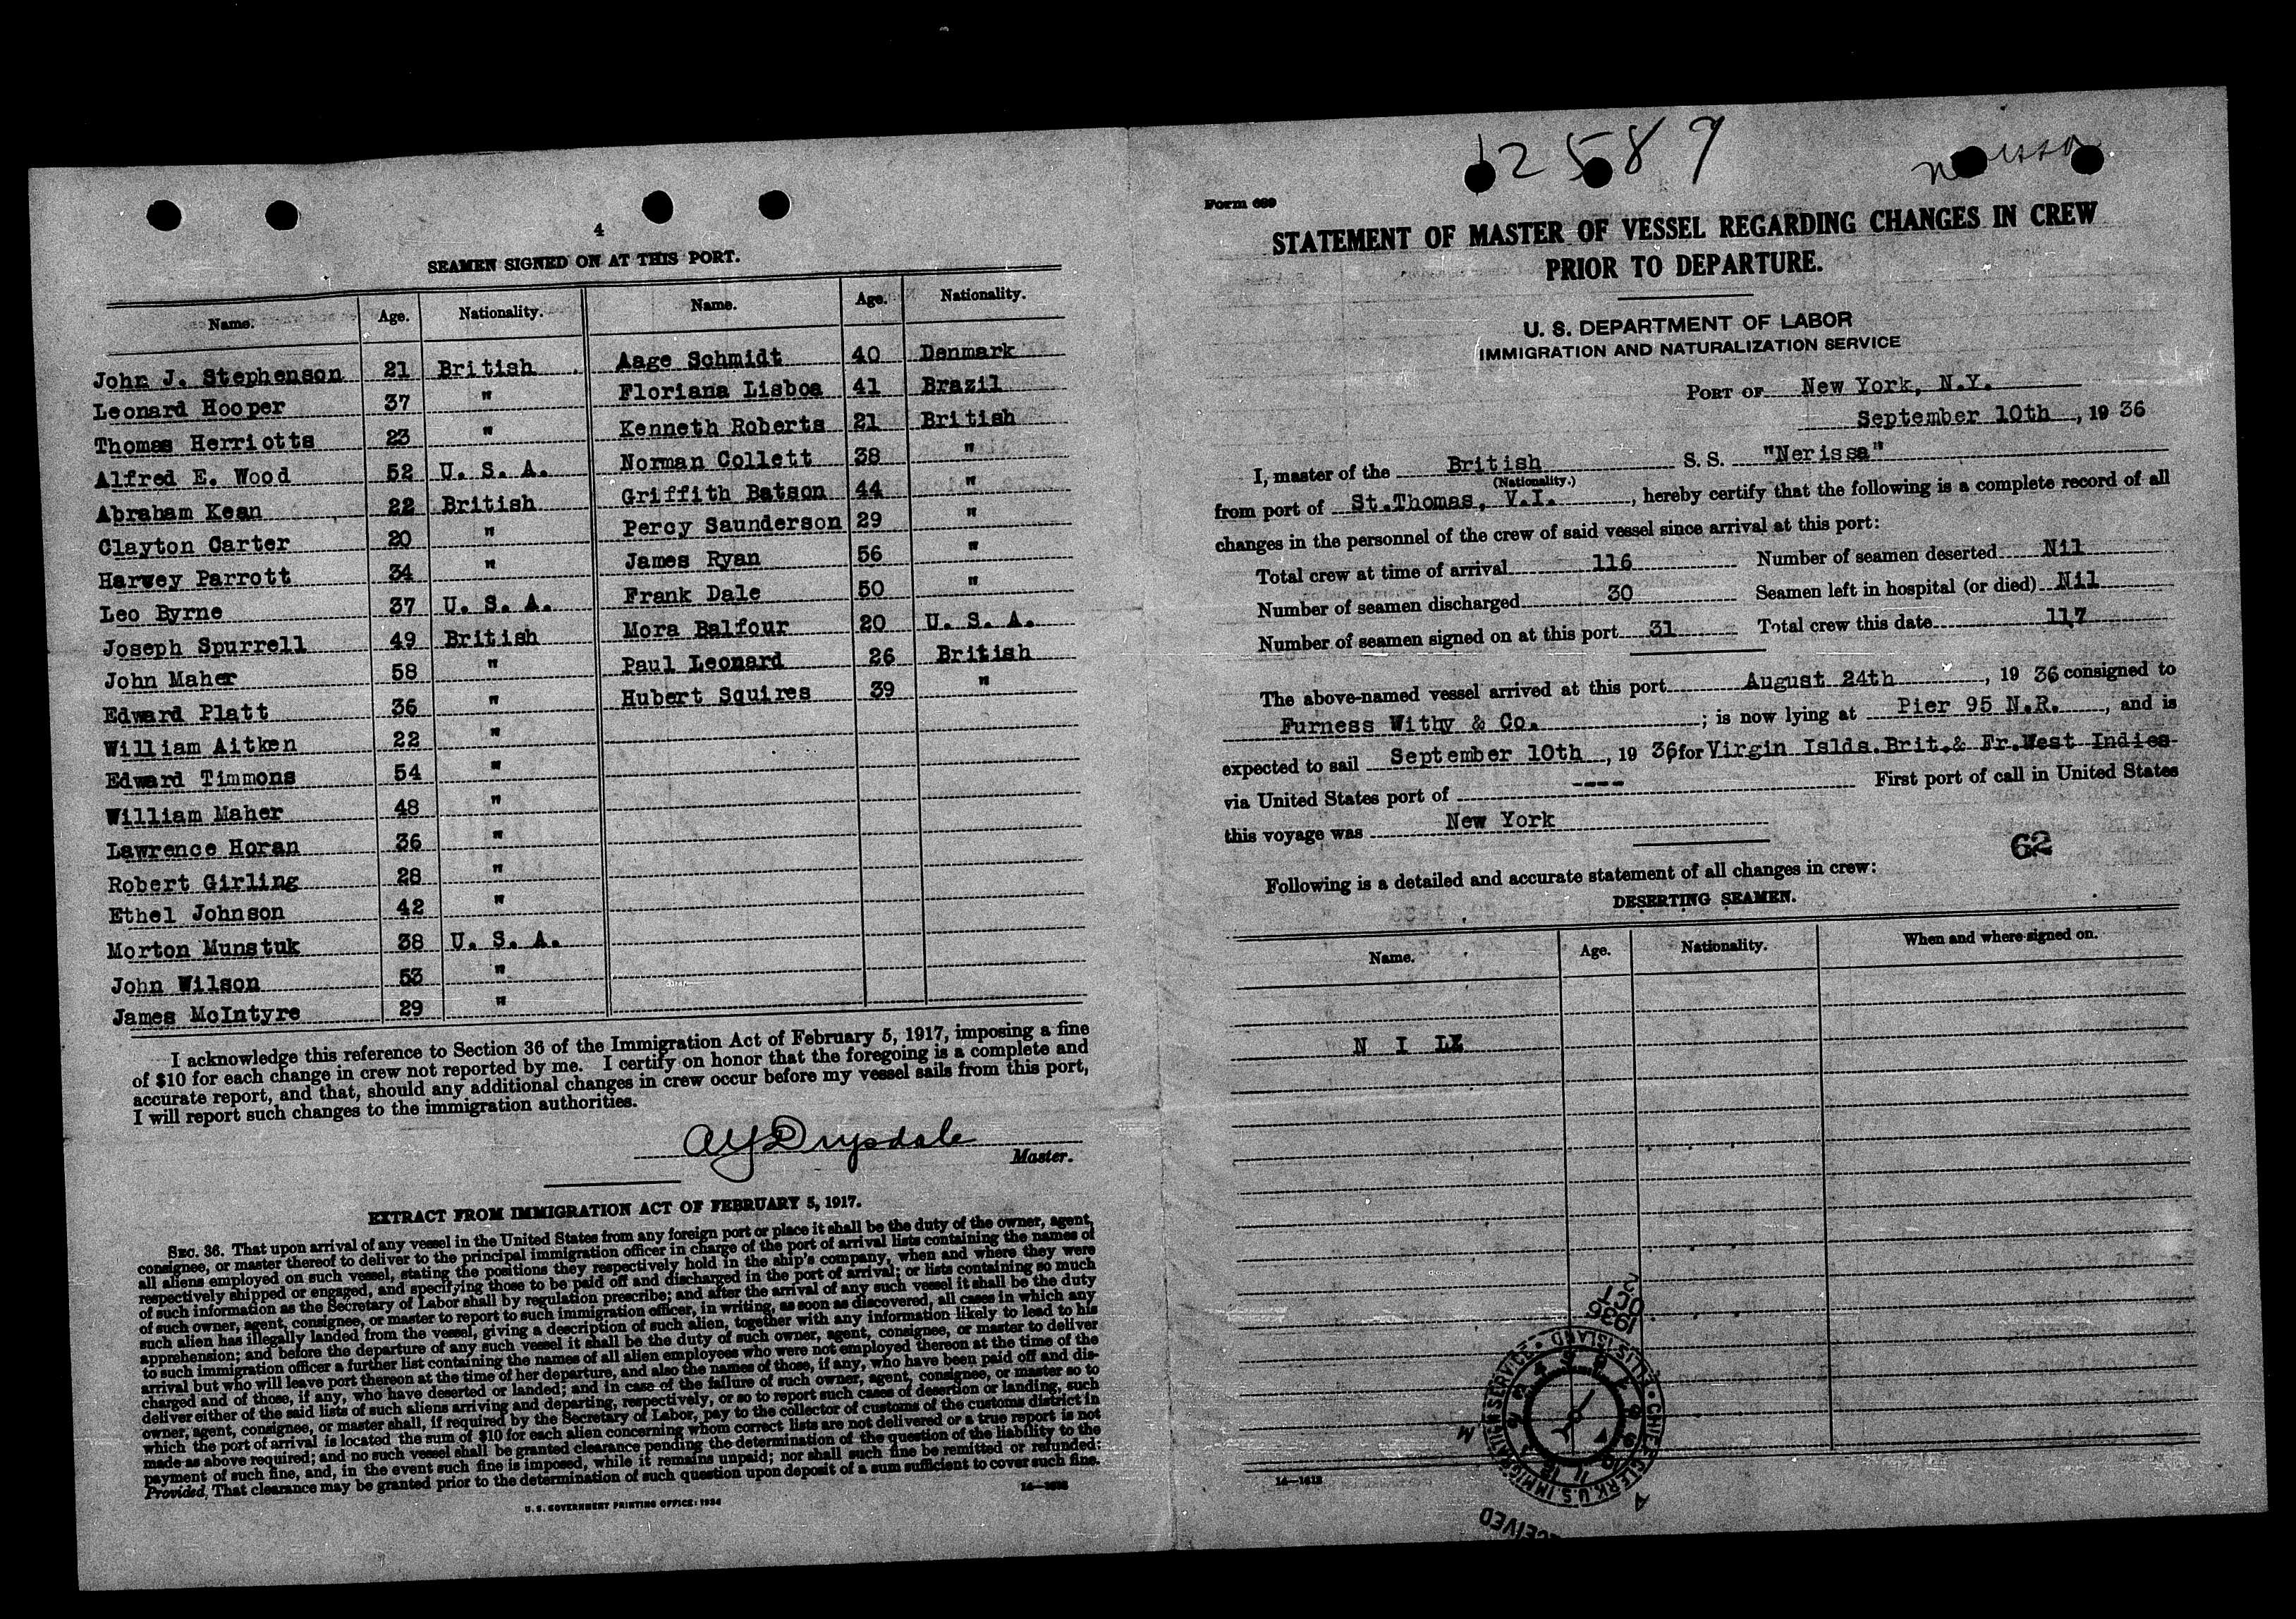 4
SEAMEN SIGNED ON AT THIS PORT.
Name. Age. Nationality. Name. Age. Nationality.
John J. Stephenson 21 British Aage Schmidt 40 Denmark
Leonard Hooper 37 " Floriana Lisboa 41 Brazil
Thomas Herriotts 23 " Kenneth Roberts 21 British
Alfred E. Wood 52 U. S. A. Norman Collett 38 "
Abraham Kean 22 British Griffith Batson 44 "
Clayton Carter 20 " Percy Saunderson 29 "
Harvey Parrott 34 " James Ryan 56 "
Leo Byrne 37 U. S. A. Frank Dale 50 "
Joseph Spurrell 49 British Mora Balfour 20 U. S. A.
John Maher 58 " Paul Leonard 26 British
Edward Platt 36 " Hubert Squires 39 "
William Aitken 22 "
Edward Timmons 54 "
William Maher 48 "
Lawrence Horan 36 "
Robert Girling 28 "
Ethel Johnson 42 "
Morton Munstuk 38 U. S. A.
John Wilson 53 "
James McIntyre 29 "
I acknowledge this reference to Section 36 of the Immigration Act of February 5, 1917, imposing a fine
of $10 for each change in crew not reported by me. I certify on honor that the foregoing is a complete and
accurate report, and that, should any additional changes in crew occur before my vessel sails from this port,
I will report such changes to the immigration authorities.
AYDrysdale
Master.
EXTRACT FROM IMMIGRATION ACT OF FEBRUARY 5, 1917.
SEC. 36. That upon arrival of any vessel in the United States from any foreign port or place it shall be the duty of the owner, agent,
consignee, or master thereof to deliver to the principal immigration officer in charge of the port of arrival lists containing the names of
all aliens employed on such vessel, stating the positions they respectively hold in the ship's company, when and where they were
respectively shipped or engaged, and specifying those to be paid off and discharged in the port of arrival; or lists containing so much
of such information as the Secretary of Labor shall by regulation prescribe; and after the arrival of any such vessel it shall be the duty
of such owner, agent, consignee, or master to report to such immigration officer, in writing, as soon as discovered, all cases in which any
such alien has illegally landed from the vessel, giving a description of such alien, together with any information likely to lead to his
apprehension; and before the departure of any such vessel it shall be the duty of such owner, agent, consignee, or master to deliver
to such immigration officer a further list containing the names of all alien employees who were not employed thereon at the time of the
arrival but who will leave port thereon at the time of her departure, and also the names of those, if any, who have been paid off and dis-
charged and of those, if any, who have deserted or landed; and in case of the failure of such owner, agent, consignee, or master so to
deliver either of the said lists of such aliens arriving and departing, respectively, or so to report such cases of desertion or landing, such
owner, agent, consignee, or master shall, if required by the Secretary of Labor, pay to the collector of customs of the customs district in
which the port of arrival is located the sum of $10 for each alien concerning whom correct lists are not delivered or a true report is not
made as above required; and no such vessel shall be granted clearance pending the determination of the question of the liability to the
payment of such fine, and, in the event such fine is imposed, while it remains unpaid; nor shall such fine be remitted or refunded:
Provided, That clearance may be granted prior to the determination of such question upon deposit of a sum sufficient to cover such fine.
U. S. GOVERNMENT PRINTING OFFICE: 1934
12589
Nerissa
Form 689
STATEMENT OF MASTER OF VESSEL REGARDING CHANGES IN CREW
PRIOR TO DEPARTURE.
U. S. DEPARTMENT OF LABOR
IMMIGRATION AND NATURALIZATION SERVICE
PORT OF New York, N.Y.
September 10th, 19 36
I, master of the British S. S. "Nerissa"
(Nationality.)
from port of St.Thomas, V.I., hereby certify that the following is a complete record of all
changes in the personnel of the crew of said vessel since arrival at this port:
Total crew at time of arrival 116 Number of seamen deserted Nil
Number of seamen discharged 30 Seamen left in hospital (or died) Nil
Number of seamen signed on at this port 31 Total crew this date 117
The above-named vessel arrived at this port August 24th, 19 36 consigned to
Furness Withy & Co.; is now lying at Pier 95 N.R., and is
expected to sail September 10th, 19 36 for Virgin Islds. Brit. & Fr. West Indies
via United States port of ---- First port of call in United States
this voyage was New York
62
Following is a detailed and accurate statement of all changes in crew:
DESERTING SEAMEN.
Name. Age. Nationality. When and where signed on.
N I L
14—1613
1936
OCT
2
CHIEF CLERK U.S. IMMIGRATION SERVICE • ELLIS ISLAND •
RECEIVED